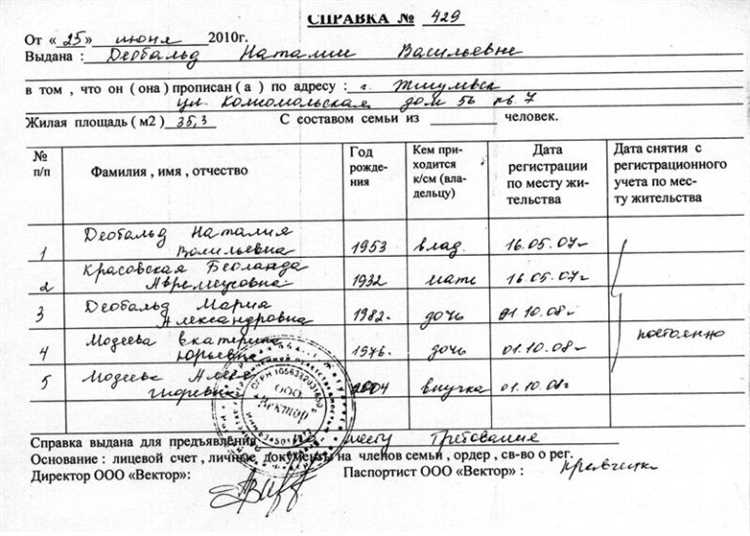 СПРАВКА № 429
От «25» июня 2010г.
Выдана : Деобальд Наталии Васильевне
в том , что он ( она ) прописан ( а ) по адресу : г.
ул. Комсомольская дом 56 кв. 7
Жилая площадь ( м2 ) 35,3 С составом семьи из человек.
№ п/п Фамилия , имя , отчество Год рожде- ния Кем при- ходится к/см (вла- дельцу) Дата регистрации по месту жи- тельства Дата снятия с регистрационного учета по мес- ту жительства
1 Деобальд Наталия
1953 влад. 16.05.07г
2 Красовская Иоланда
1932 мать 16.05.07г
3 Деобальд Мария
Александровна 1982. дочь 01.10.08г
4 Модеева Екатерина
Юрьевна 1976. дочь 01.10.08г постоянно
5 Модеева
2004 внучка 01.10.08г
ООО "Вектор"
Справка выдана для предъявления по месту требования
Основание : лицевой счет , личные документы на членов семьи , ордер , св-во о рег.
Директор ООО «Вектор»: Паспортист ООО «Вектор» :